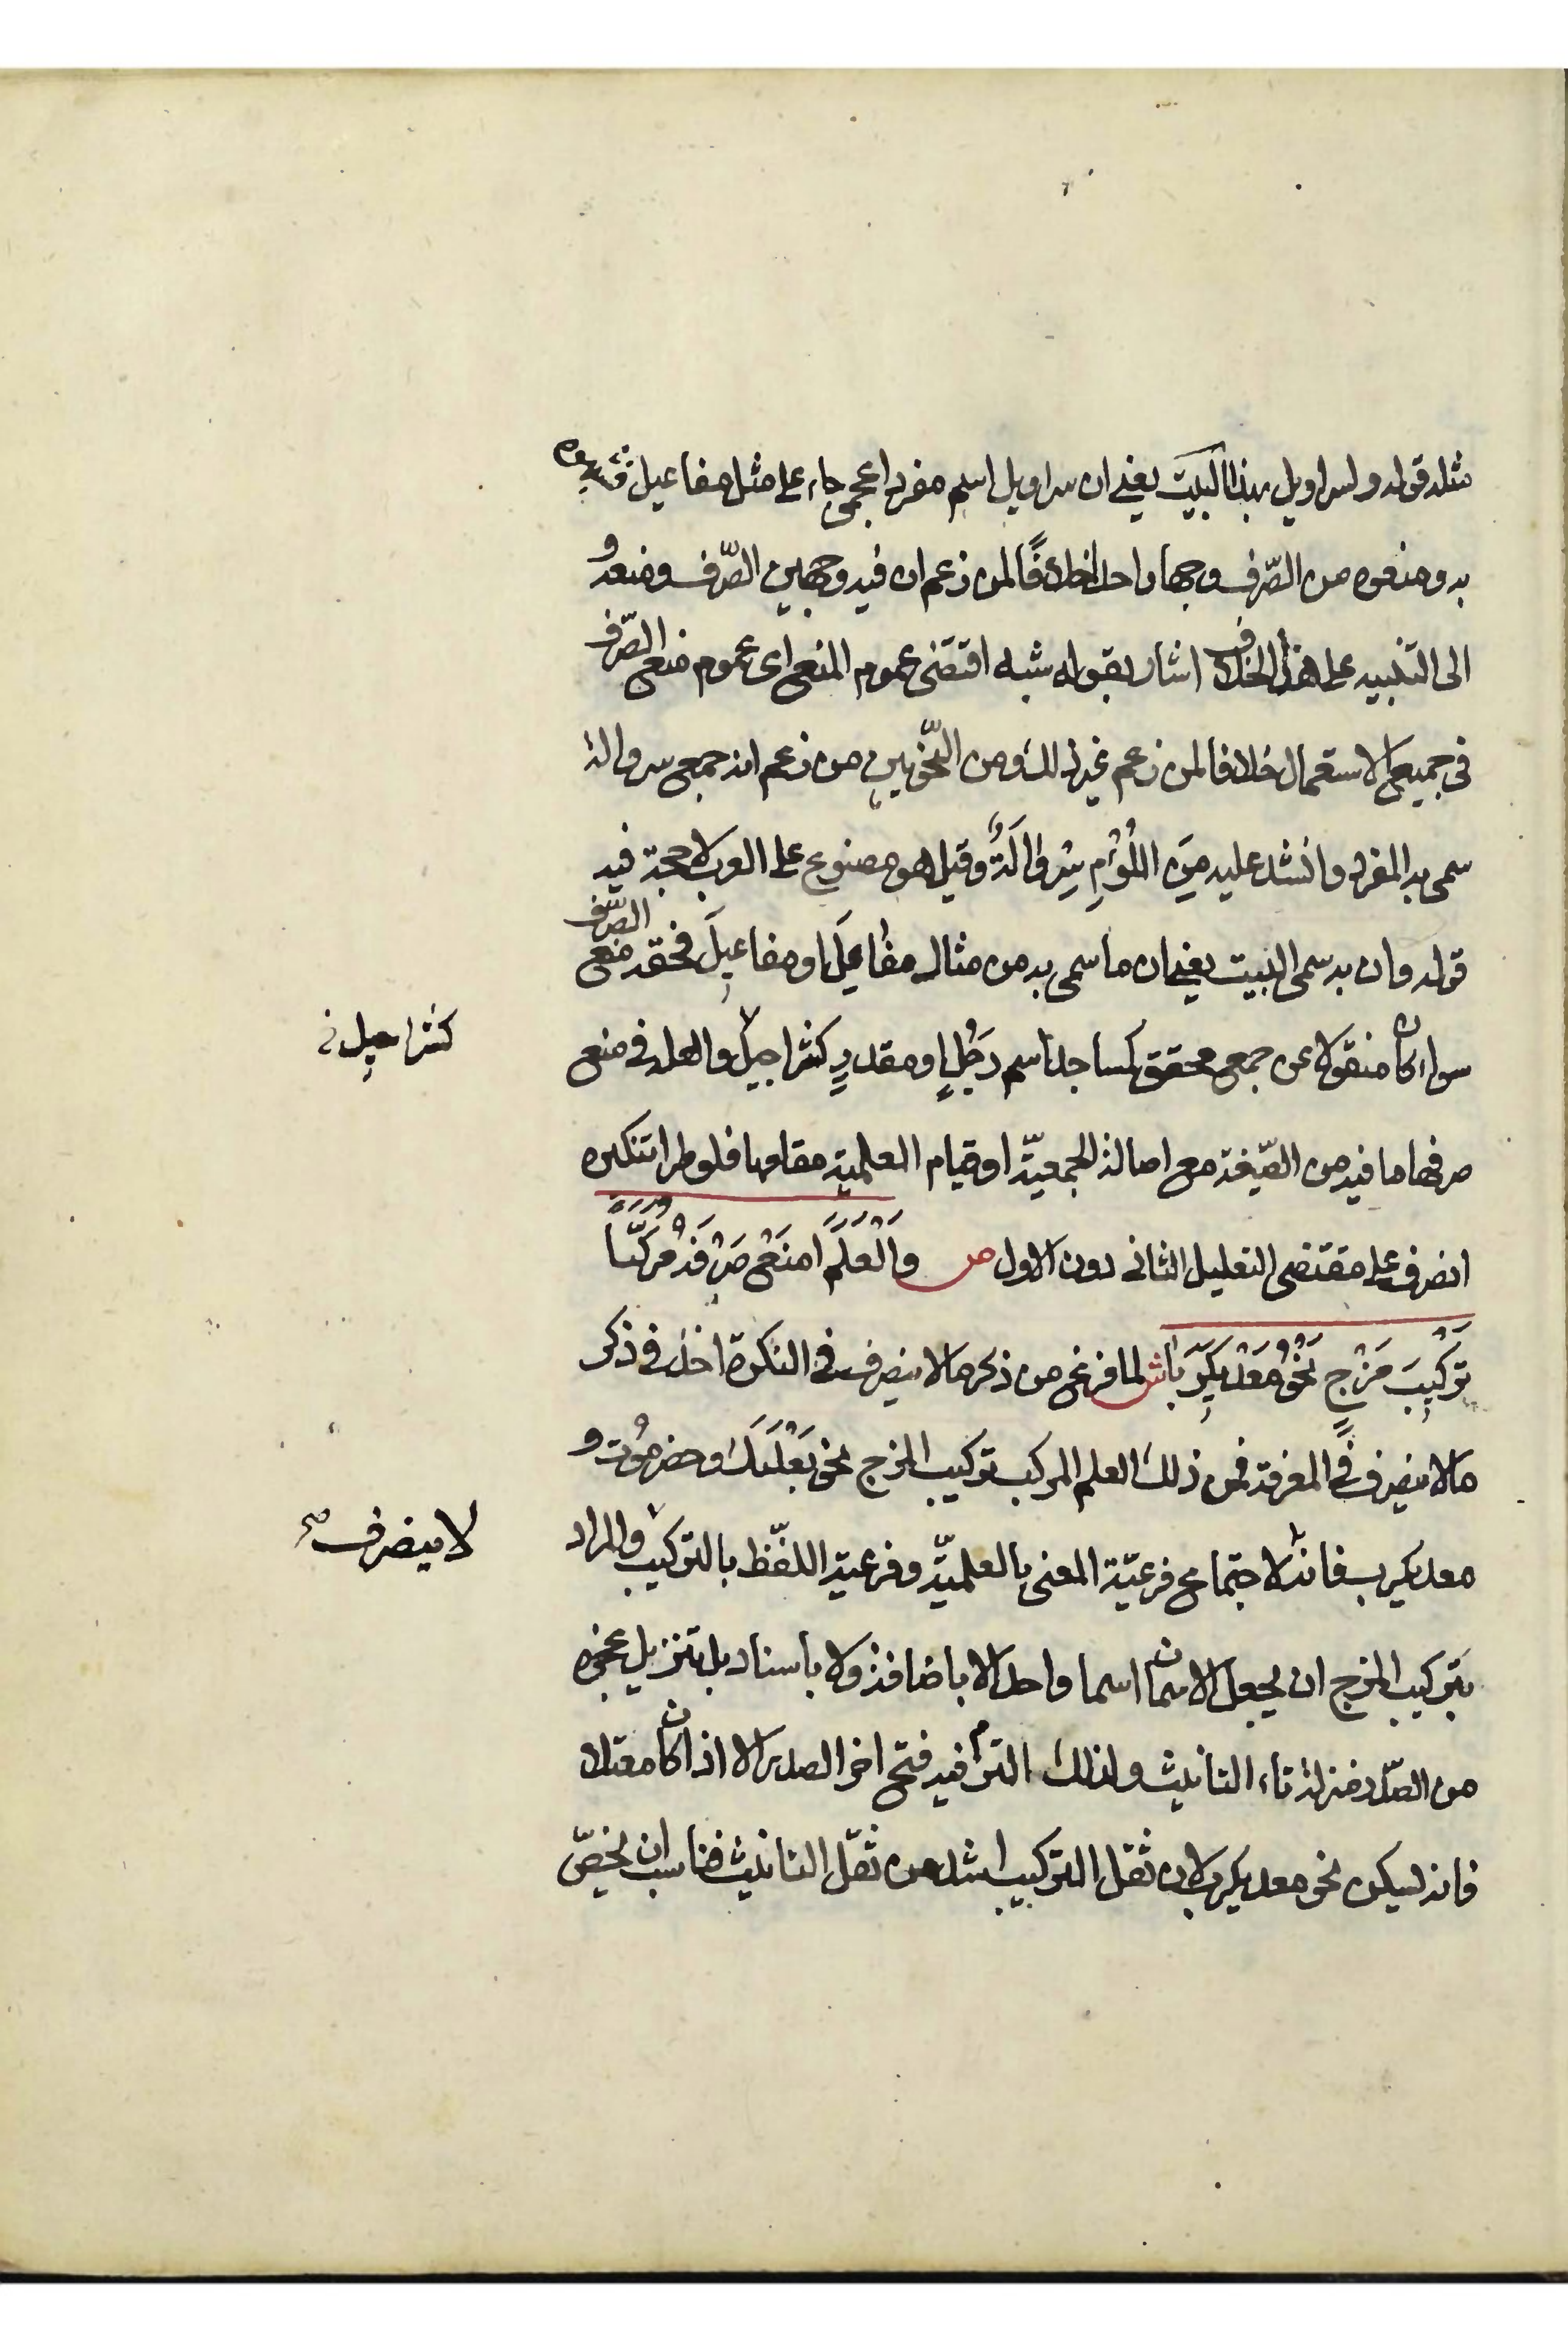 مثله قوله ولسراويل بهذا البيت يعني ان سراويل اسم مفرد اعجمي جاء على مثل مفاعيل فشبهوه
به ومنعوه من الصّرف وجها واحدا خلافًا لمن زعم ان فيه وجهين الصّرف ومنعه و
الى التنبيه على هذا الخلاف اشار بقوله شبه اقتضى عموم المنع اى عموم منع الصّرف
فى جميع الاستعمال خلافا لمن زعم غير ذلك ومن النّحويين من زعم انه جمع سروالة
سمى به المفرد وانشد عليه مِنَ اللُّؤْمِ سِرْوَالَةٌ وقيل هو مصنوع على العرب لا حجة فيه
قوله وان به سمى البيت يعني ان ما سمى به من مثال مفاعِلَ او مفاعيلَ فحقه منع الصّرف
سواء كان منقولا عن جمع محقق كمساجد اسم رَجُلٍ او مقدرٍ كشراجيل والعلة فى منع
كشراحيل
صرفه ما فيه من الصّيغة مع اصالة الجمعيّة او قيام العلمية مقامها فلو طرا تنكيره
انصرف على مقتضى التعليل الثانى دون الاول ص وَالْعَلَمَ امنَعْ صَرْفَهُ مُرَكَّبًا
تَرْكِيبَ مَزْجٍ نَحْوُ مَعْدِيكَرِبَا ش لما فرغ من ذكر ما لا ينصرف فى النكرة اخذ فى ذكر
ما لا ينصرف فى المعرفة فمن ذلك العلم المركب تركيب المزج نحو بَعْلَبَكَ وحضرموت و
معديكرب فانه لاجتماع فرعيّة المعنى بالعلميّة وفرعية اللفظ بالتركيب والمراد
لا ينصرف صح
بتركيب المزج ان يجعل الاسمان اسما واحدا لا باضافة ولا باسناد بل بتنزيل عجزه
من الصّدر منزلة تاء التانيث ولذلك التزم فيه فتح اخر الصدر الا اذا كان معتلا
فانه ليكن نحو معديكرب لان ثقل التركيب اشد من ثقل التانيث فناسب ان يخصّ